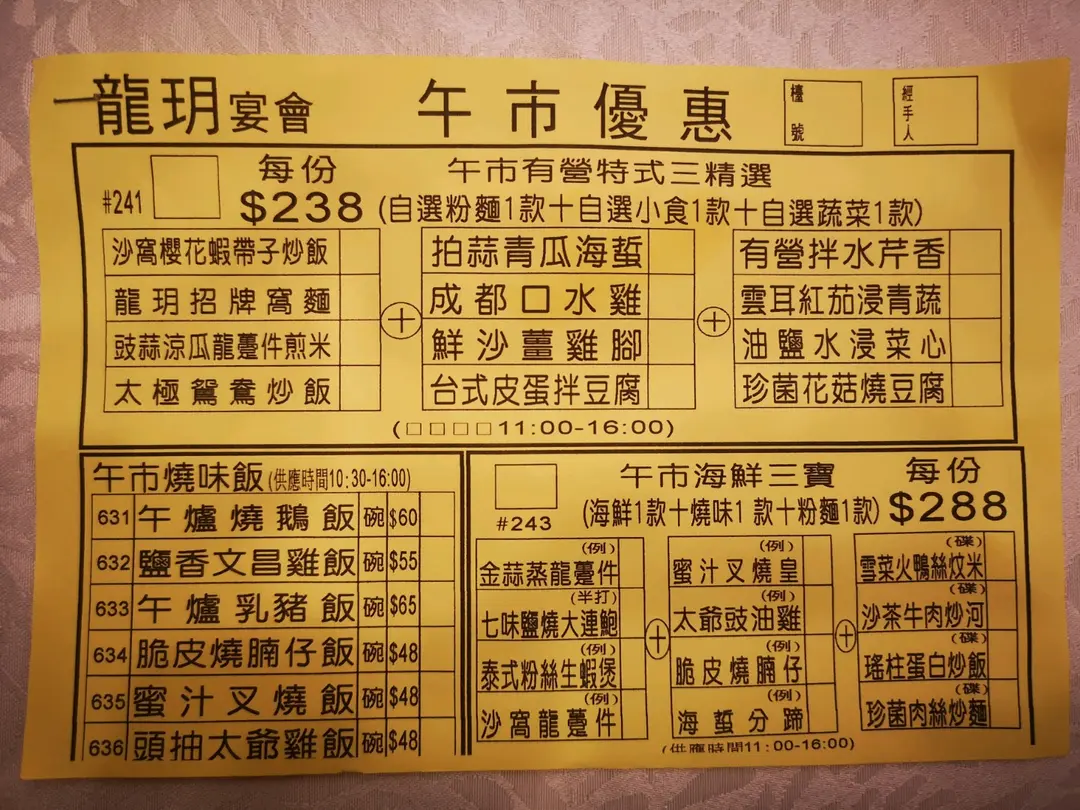 龍玥宴會 午市優惠 檯號 經手人
#241 每份 $238 午市有營特式三精選
(自選粉麵1款+自選小食1款+自選蔬菜1款)
沙窩櫻花蝦帶子炒飯 拍蒜青瓜海蜇 有營拌水芹香
龍玥招牌窩麵 成都口水雞 雲耳紅茄浸青蔬
豉蒜涼瓜龍躉件煎米 + 鮮沙薑雞腳 + 油鹽水浸菜心
太極鴛鴦炒飯 台式皮蛋拌豆腐 珍菌花菇燒豆腐
(□□□□11:00-16:00)
午市燒味飯(供應時間10:30-16:00)
631 午爐燒鵝飯 碗 $60
632 鹽香文昌雞飯 碗 $55
633 午爐乳豬飯 碗 $65
634 脆皮燒腩仔飯 碗 $48
635 蜜汁叉燒飯 碗 $48
636 頭抽太爺雞飯 碗 $48
#243 午市海鮮三寶 每份 $288
(海鮮1款+燒味1款+粉麵1款)
(例) (例) (碟)
金蒜蒸龍躉件 蜜汁叉燒皇 雪菜火鴨絲炆米
(半打) (例) (碟)
七味鹽燒大連鮑 太爺豉油雞 沙茶牛肉炒河
+ +
(例) (例) (碟)
泰式粉絲生蝦煲 脆皮燒腩仔 瑤柱蛋白炒飯
(例) (例) (碟)
沙窩龍躉件 海蜇分蹄 珍菌肉絲炒麵
(供應時間11:00-16:00)